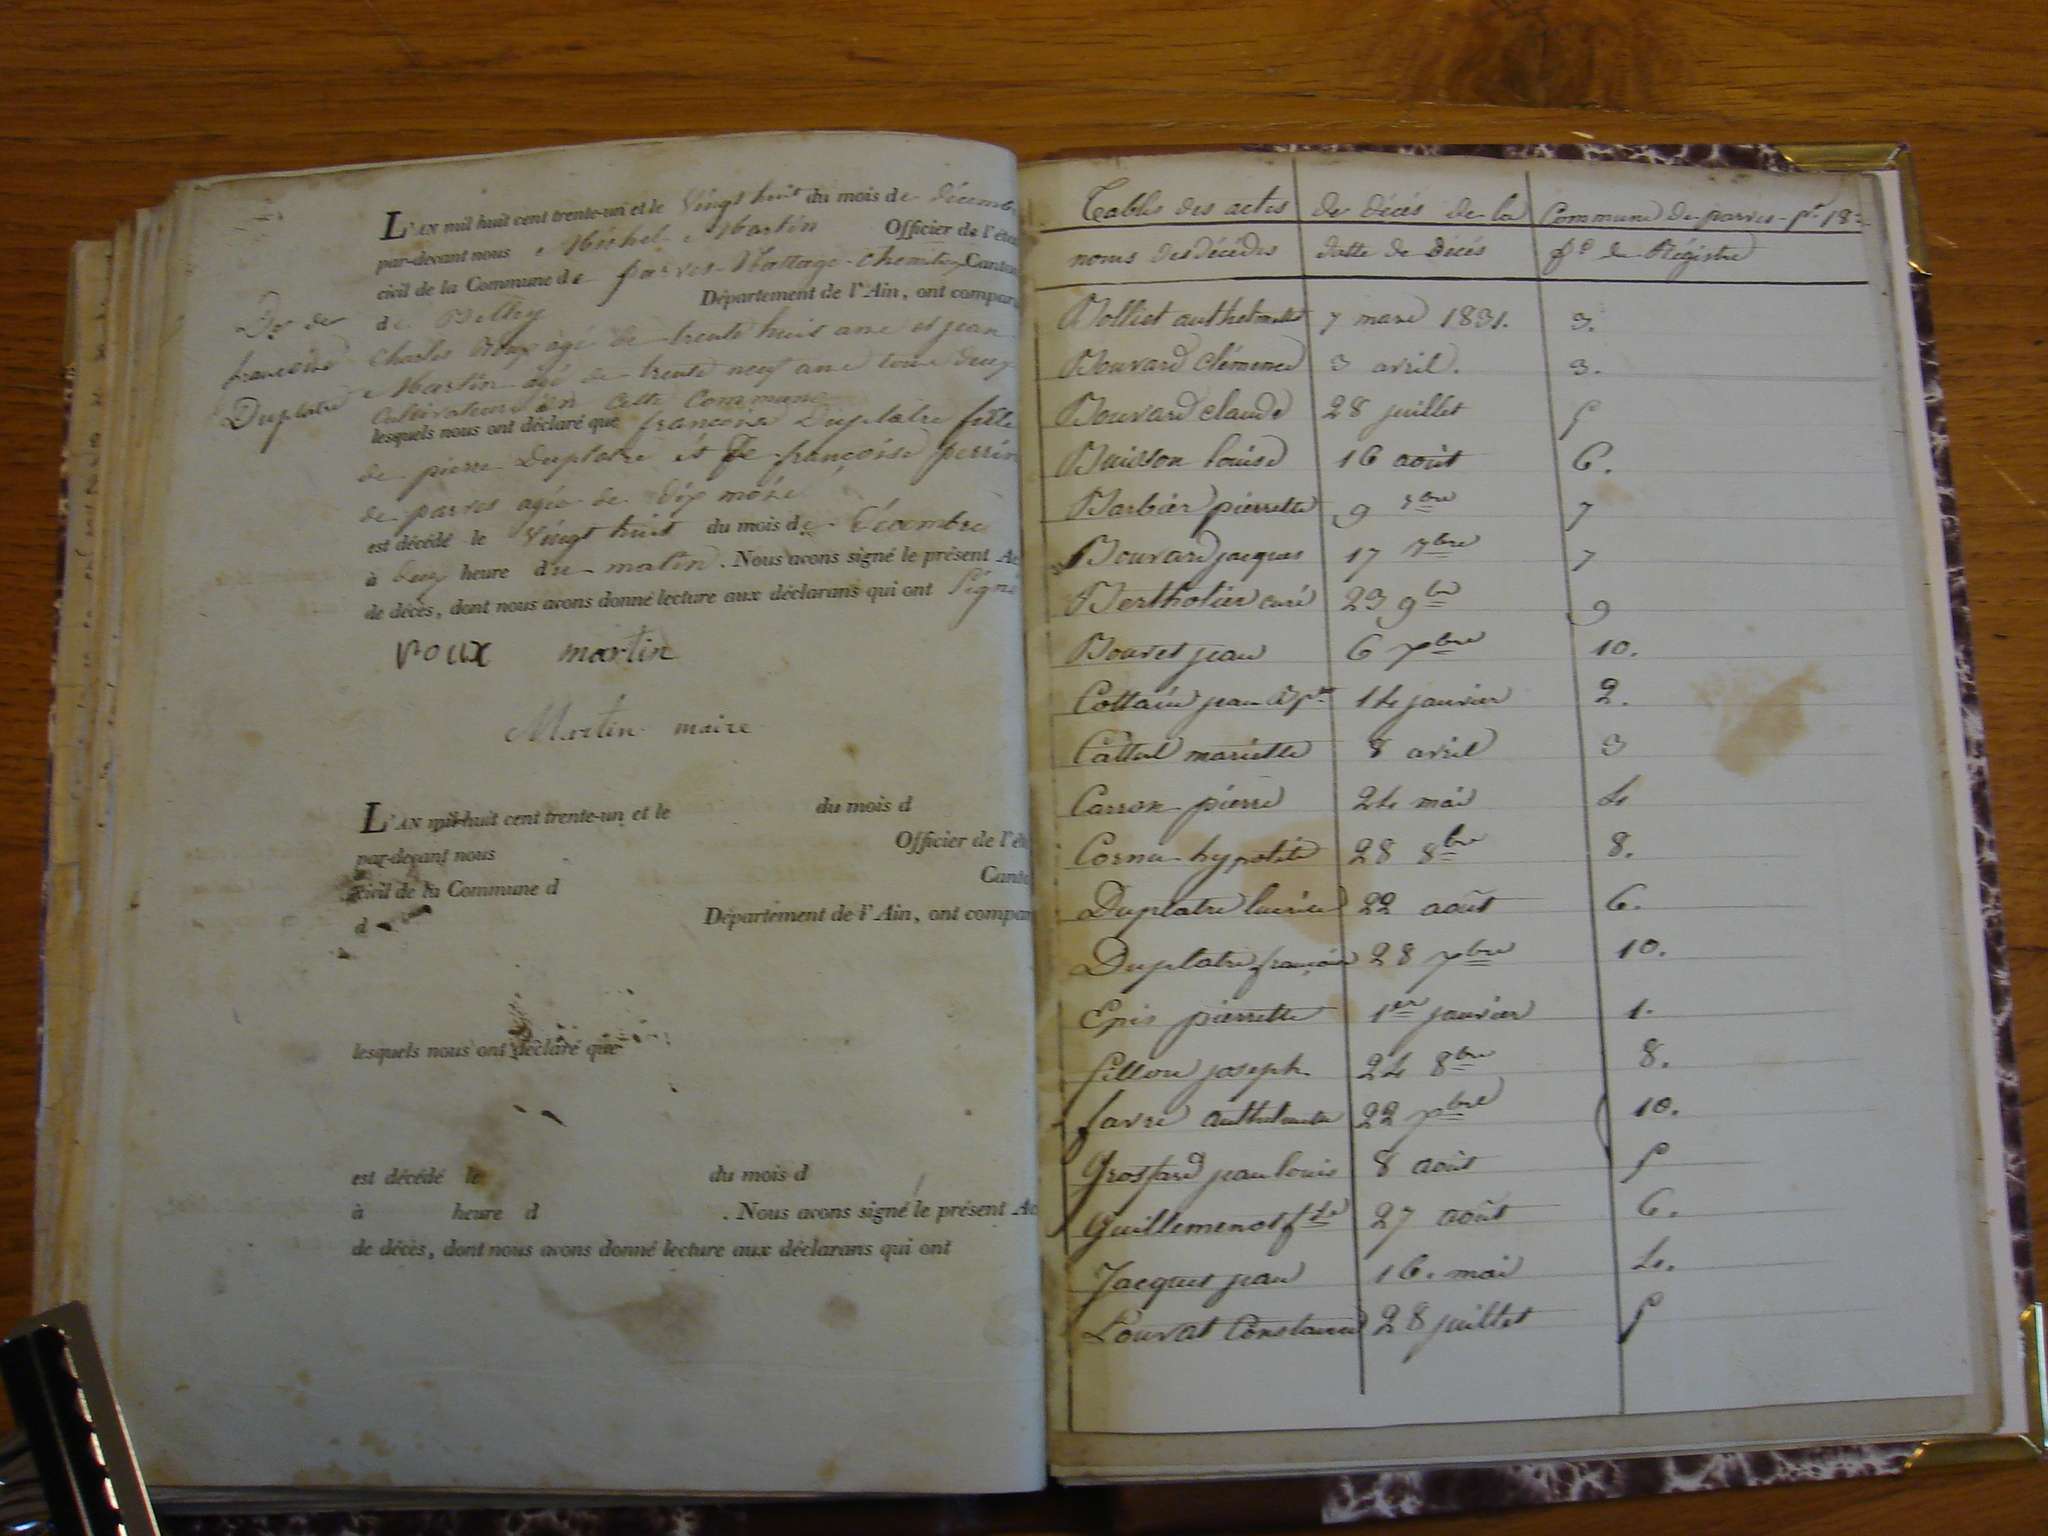 L'AN mil huit cent trente-un et le Vingt huit du mois de décemb
par-devant nous Michel Martin Officier de l'éta
civil de la Commune de parves-Nattage-chemilieu Canton
de Belley Département de l'Ain, ont compar
Ds de
françoise
Duplatre
Charles Roux agé de trente huit ans et jean
Martin agé de trente neuf ans tous deux
Cultivateurs en cette Commune
lesquels nous ont déclaré que françoise Duplatre fille
de pierre Duplatre et de françoise perrin
de parves agée de dix mois
est décédé le Vingt huit du mois de Décembre
à deux heure du matin. Nous avons signé le présent Ac
de décès, dont nous avons donné lecture aux déclarans qui ont Signé
roux martin
Martin maire
L'AN mil huit cent trente-un et le du mois d
par-devant nous Officier de l'éta
civil de la Commune d Canto
d Département de l'Ain, ont compar
lesquels nous ont déclaré que
est décédé le du mois d
à heure d . Nous avons signé le présent Ac
de décès, dont nous avons donné lecture aux déclarans qui ont
Table des actes de décés de la Commune de parves pr 183
noms des décédés datte de Décés fo du Régistre
Bolliet anthelmette 7 mars 1831. 3.
Bouvard clémence 3 avril. 3.
Bouvard claude 28 juillet 5
Buisson louise 16 août 6.
Barbier pierrette 9 7bre 7
Bouvard jacques 17 7bre 7
Bertholier curé 23 9bre 9
Bouvet jean 6 xbre 10.
Cottain jean Bpte 14 janvier 2.
Cattel mariette 8 avril 3
Carron pierre 24 mai 4
Cornu hypolite 28 8bre 8.
Duplatre 22 août 6.
Duplatre françoise 28 xbre 10.
Epis pierrette 1er janvier 1.
fillou joseph 24 8bre 8.
favre anthelmette 22 xbre 10.
Grosfard jean louis 8 août 5
Guillemenot 27 août 6.
Jacquet jean 16. mai 4.
Louvat Constance 28 juillet 5